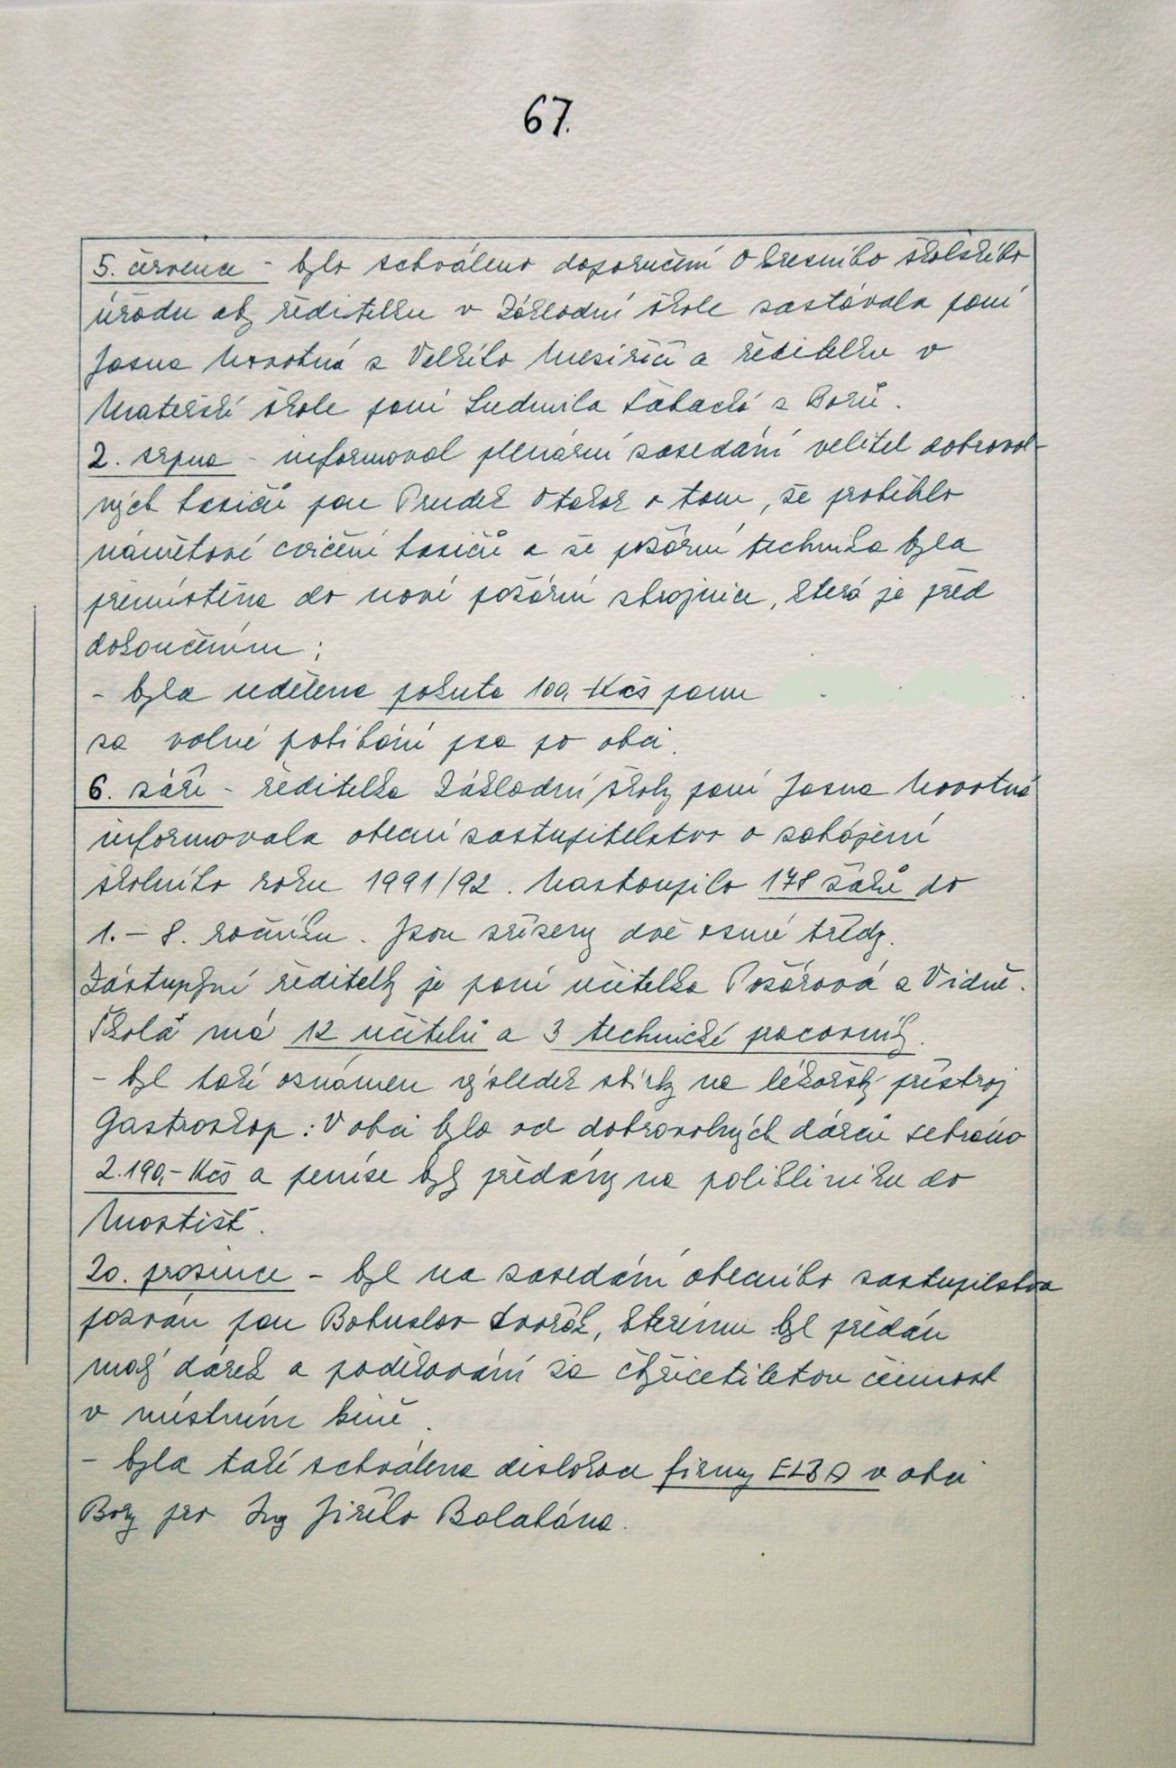 67.
5. července - bylo schváleno doporučení Okresního školského
úřadu aby ředitelku v Základní škole zastávala paní
Jasna Novotná z Velkého Meziříčí a ředitelku v
Mateřské škole paní Ludmila z Borů.
2. srpna - informoval plenární zasedání velitel dobrovol-
ných hasičů pan Prudek Otakar o tom, že proběhlo
námětové cvičení hasičů a že požární technika byla
přemístěna do nové požární zbrojnice, která je před
dokončením;
- byla udělena pokuta 100,- Kčs panu
za volné pobíhání psa po obci.
6. září - ředitelka Základní školy paní Jasna Novotná
informovala obecní zastupitelstvo o zahájení
školního roku 1991/92. Nastoupilo 178 žáků do
1. - 8. ročníku. Jsou zřízeny dvě osmé třídy.
Zástupkyní ředitelky je paní učitelka Požárová z Vídně.
Škola má 12 učitelů a 3 technické pracovníky.
- byl také oznámen výsledek sbírky na lékařský přístroj
Gastroskop: V obci bylo od dobrovolných dárců sebráno
2.190,- Kčs a peníze byly předány na polikliniku do
Mostišť.
20. prosince - byl na zasedání obecního zastupitelstva
pozván pan Bohuslav Dvořák, kterému byl předán
malý dárek a poděkování za čtyřicetiletou činnost
v místním kině.
- byla také schválena dislokace firmy ELBA v obci
Bory pro Ing Jiřího Balabána.